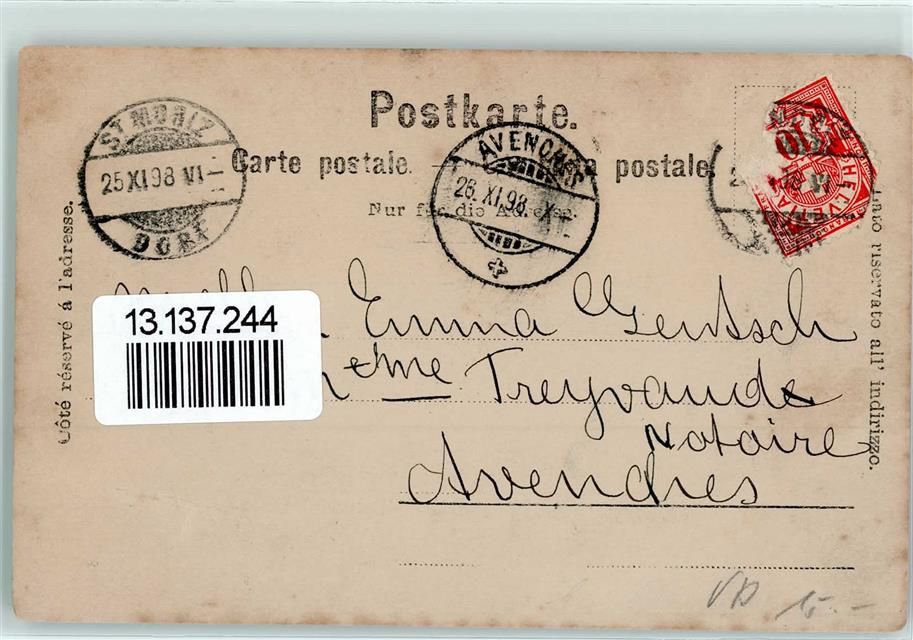 Postkarte.
Carte postale. postale.
Nur für die Adresse.
ST. MORIZ
25 XI 98 VI
DORF
AVENCHES
26. XI. 98 X
10
HELVETIA
Côté réservé à l'adresse.
Lato riservato all' indirizzo.
13.137.244
Emma Gentsch
eme Treyvauds
Notaire
Avenches
VD 15.-